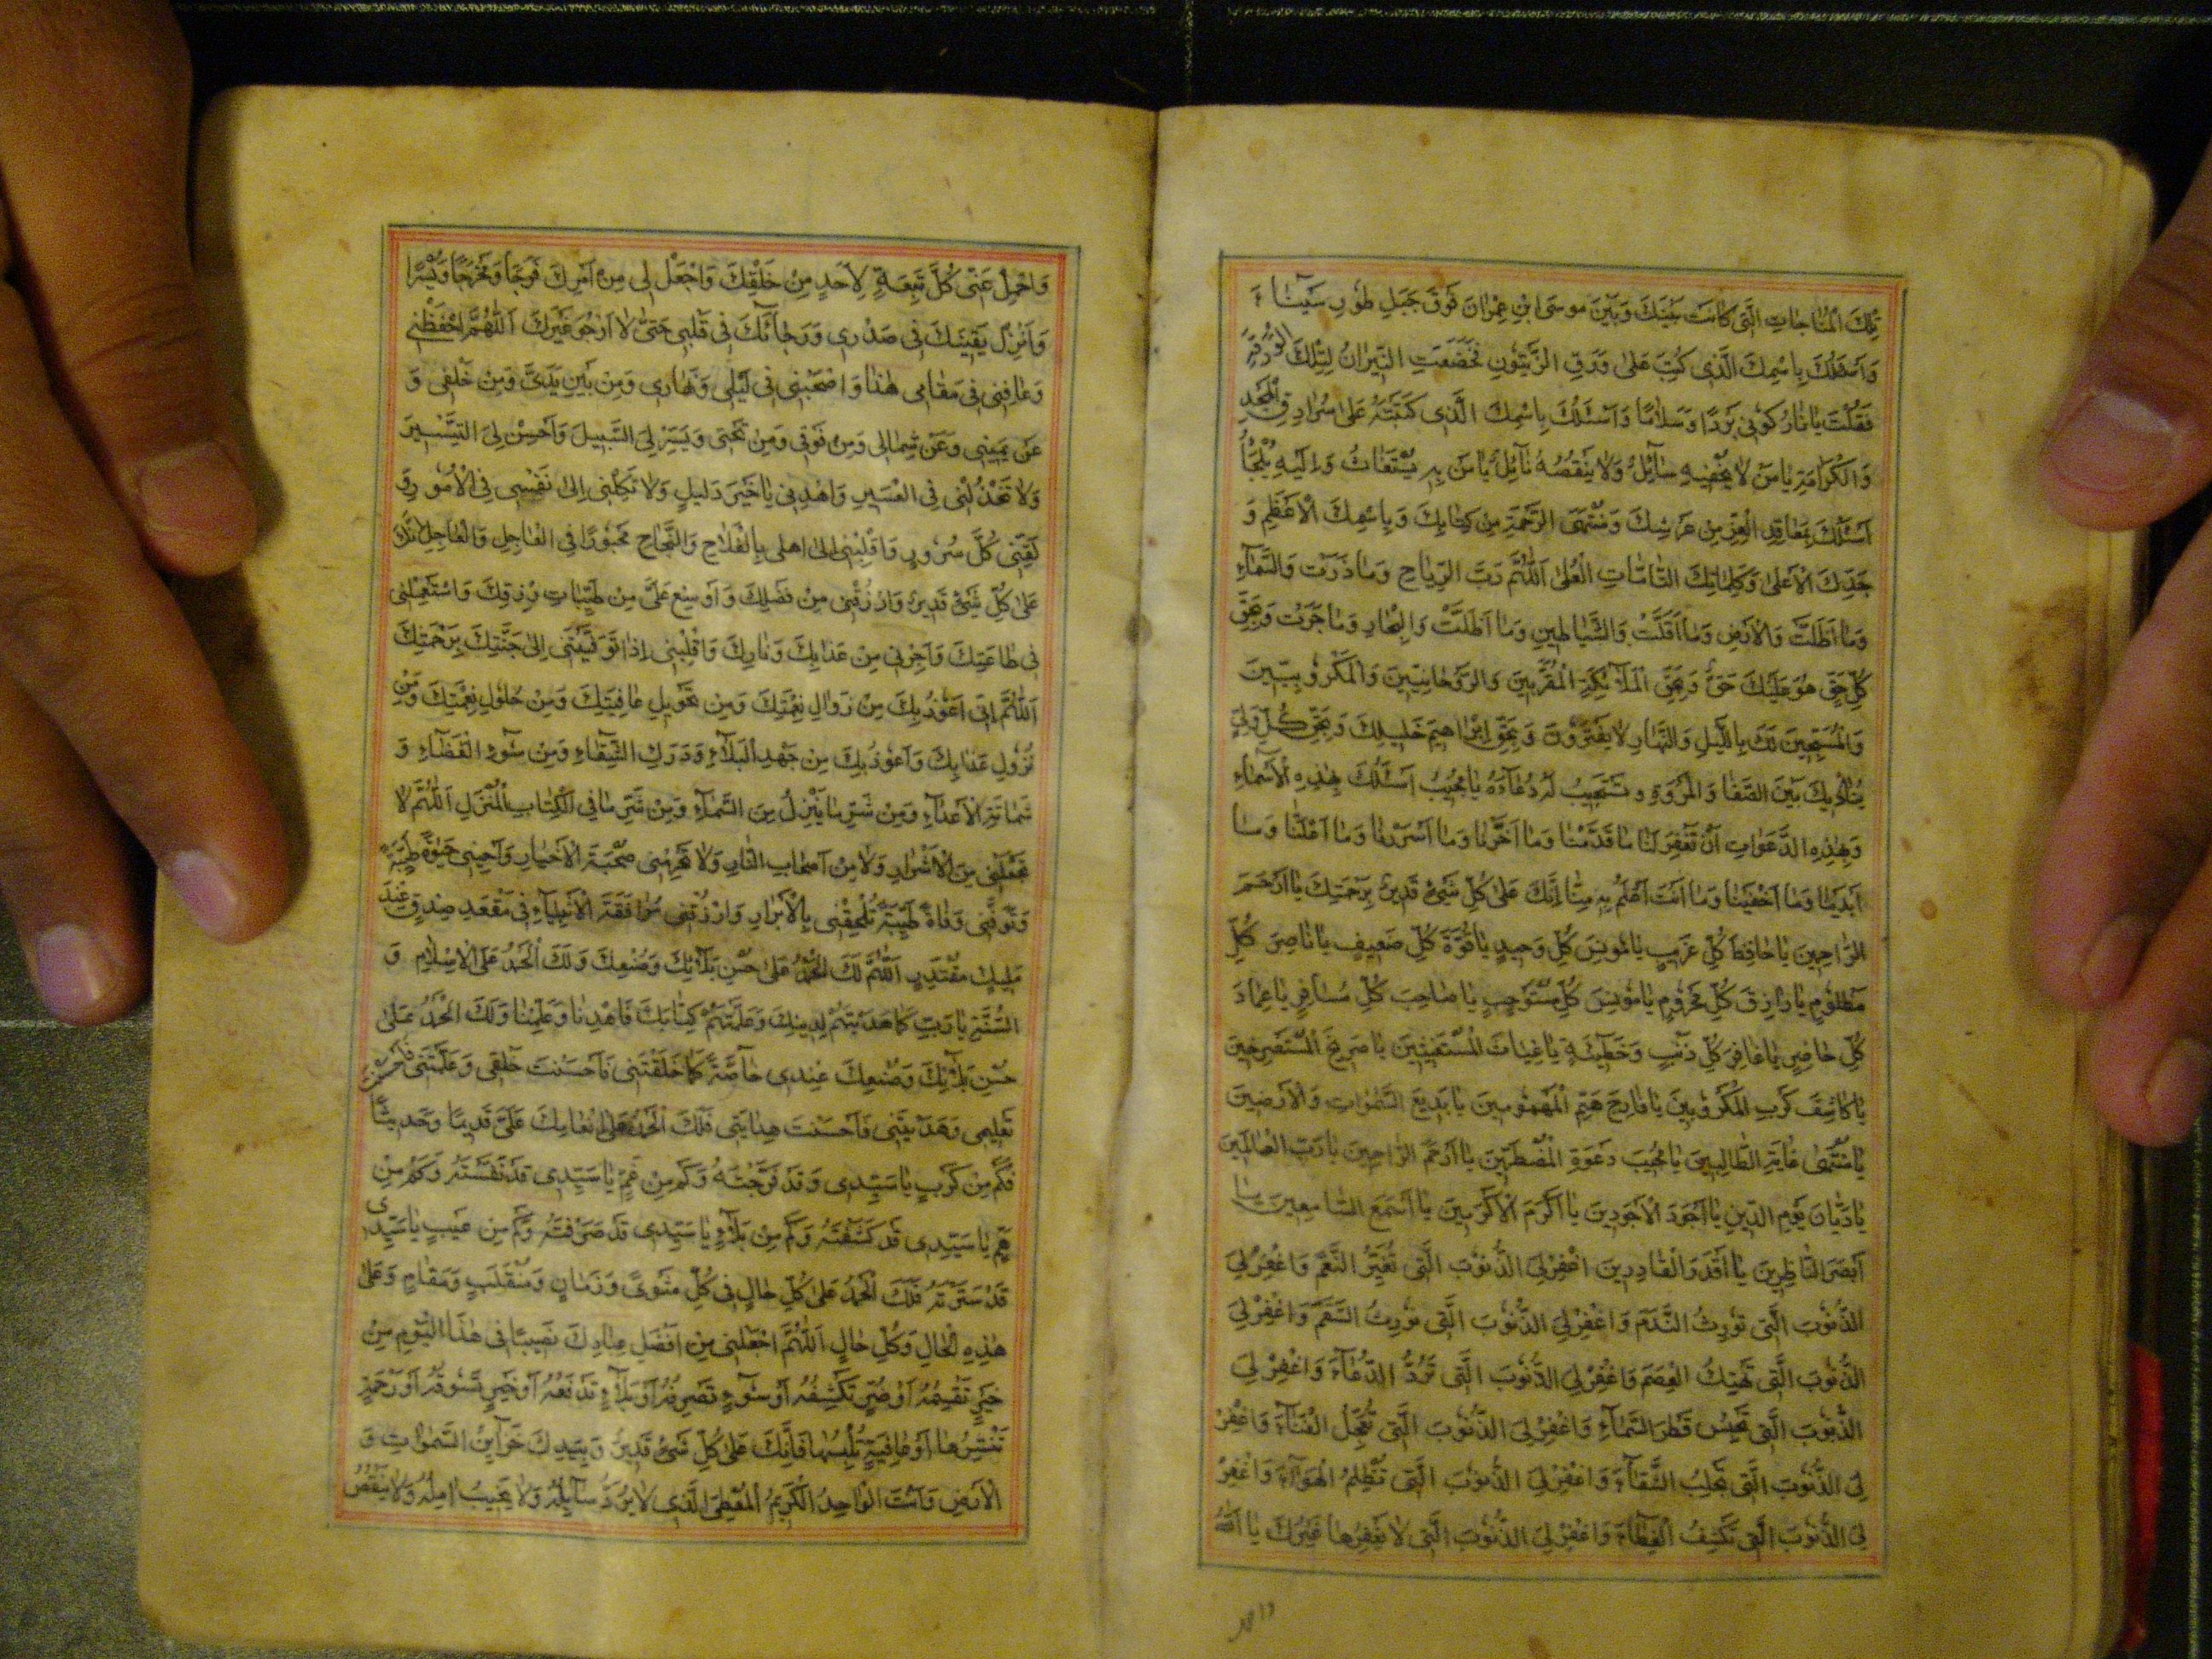 تِلْكَ الْمُنَاجَاتِ الَّتِي كَانَتْ بَيْنَكَ وَبَيْنَ مُوسَى ابْنِ عِمْرَانَ فَوْقَ جَبَلِ طُورِ سَيْنَاءَ
وَاَسْئَلُكَ بِاسْمِكَ الَّذِي كُتِبَ عَلَى وَرَقِ الزَّيْتُونِ فَخَضَعَتِ النِّيرَانُ لِتِلْكَ الْوَرَقَةِ
فَقُلْتَ يَا نَارُ كُونِي بَرْدًا وَسَلَامًا وَاَسْئَلُكَ بِاسْمِكَ الَّذِي كَتَبْتَهُ عَلَى سُرَادِقِ الْمَجْدِ
وَالْكَرَامَةِ يَا مَنْ لَا يُحْفِيهِ سَآئِلٌ وَلَا يَنْقُصُهُ نَآئِلٌ يَا مَنْ بِهِ يُسْتَغَاثُ وَاِلَيْهِ يُلْجَأُ
اَسْئَلُكَ بِمَعَاقِدِ الْعِزِّ مِنْ عَرْشِكَ وَمُنْتَهَى الرَّحْمَةِ مِنْ كِتَابِكَ وَبِاسْمِكَ الْاَعْظَمِ وَ
جَدِّكَ الْاَعْلَى وَكَلِمَاتِكَ التَّامَّاتِ الْعُلَى اَللّٰهُمَّ رَبَّ الرِّيَاحِ وَمَا ذَرَتْ وَالسَّمَآءِ
وَمَا اَظَلَّتْ وَالْاَرْضِ وَمَا اَقَلَّتْ وَالشَّيَاطِينِ وَمَا اَضَلَّتْ وَالْبِحَارِ وَمَا جَرَتْ وَبِحَقِّ
كُلِّ حَقٍّ هُوَ عَلَيْكَ حَقٌّ وَبِحَقِّ الْمَلَآئِكَةِ الْمُقَرَّبِينَ وَالرَّوْحَانِيِّينَ وَالْكَرُّوبِيِّينَ
وَالْمُسَبِّحِينَ لَكَ بِاللَّيْلِ وَالنَّهَارِ لَا يَفْتُرُونَ وَبِحَقِّ اِبْرَاهِيمَ خَلِيلِكَ وَبِحَقِّ كُلِّ وَلِيٍّ
يُنَادِيكَ بَيْنَ الصَّفَا وَالْمَرْوَةِ وَتَسْتَجِيبُ لَهُ دُعَآءَهُ يَا مُجِيبُ اَسْئَلُكَ بِهٰذِهِ الْاَسْمَآءِ
وَبِهٰذِهِ الدَّعَوَاتِ اَنْ تَغْفِرَ لَنَا مَا قَدَّمْنَا وَمَا اَخَّرْنَا وَمَا اَسْرَرْنَا وَمَا اَعْلَنَّا وَمَا
اَبْدَيْنَا وَمَا اَخْفَيْنَا وَمَا اَنْتَ اَعْلَمُ بِهِ مِنَّا اِنَّكَ عَلَى كُلِّ شَيْءٍ قَدِيرٌ بِرَحْمَتِكَ يَا اَرْحَمَ
الرَّاحِمِينَ يَا حَافِظَ كُلِّ غَرِيبٍ يَا مُونِسَ كُلِّ وَحِيدٍ يَا قُوَّةَ كُلِّ ضَعِيفٍ يَا نَاصِرَ كُلِّ
مَظْلُومٍ يَا رَازِقَ كُلِّ مَحْرُومٍ يَا مُونِسَ كُلِّ مُسْتَوْحِشٍ يَا صَاحِبَ كُلِّ مُسَافِرٍ يَا عِمَادَ
كُلِّ حَاضِرٍ يَا غَافِرَ كُلِّ ذَنْبٍ وَخَطِيئَةٍ يَا غِيَاثَ الْمُسْتَغِيثِينَ يَا صَرِيخَ الْمُسْتَصْرِخِينَ
يَا كَاشِفَ كَرْبِ الْمَكْرُوبِينَ يَا فَارِجَ هَمِّ الْمَهْمُومِينَ يَا بَدِيعَ السَّمٰوَاتِ وَالْاَرَضِينَ
يَا مُنْتَهَى غَايَةِ الطَّالِبِينَ يَا مُجِيبَ دَعْوَةِ الْمُضْطَرِّينَ يَا اَرْحَمَ الرَّاحِمِينَ يَا رَبَّ الْعَالَمِينَ
يَا دَيَّانَ يَوْمِ الدِّينِ يَا اَجْوَدَ الْاَجْوَدِينَ يَا اَكْرَمَ الْاَكْرَمِينَ يَا اَسْمَعَ السَّامِعِينَ يَا
اَبْصَرَ النَّاظِرِينَ يَا اَقْدَرَ الْقَادِرِينَ اغْفِرْ لِيَ الذُّنُوبَ الَّتِي تُغَيِّرُ النِّعَمَ وَاغْفِرْ لِيَ
الذُّنُوبَ الَّتِي تُورِثُ النَّدَمَ وَاغْفِرْ لِيَ الذُّنُوبَ الَّتِي تُورِثُ السَّقَمَ وَاغْفِرْ لِيَ
الذُّنُوبَ الَّتِي تَهْتِكُ الْعِصَمَ وَاغْفِرْ لِيَ الذُّنُوبَ الَّتِي تَرُدُّ الدُّعَآءَ وَاغْفِرْ لِيَ
الذُّنُوبَ الَّتِي تَحْبِسُ قَطْرَ السَّمَآءِ وَاغْفِرْ لِيَ الذُّنُوبَ الَّتِي تُعَجِّلُ الْفَنَآءَ وَاغْفِرْ
لِيَ الذُّنُوبَ الَّتِي تَجْلِبُ الشَّقَآءَ وَاغْفِرْ لِيَ الذُّنُوبَ الَّتِي تُظْلِمُ الْهَوَآءَ وَاغْفِرْ
لِيَ الذُّنُوبَ الَّتِي تَكْشِفُ الْغِطَآءَ وَاغْفِرْ لِيَ الذُّنُوبَ الَّتِي لَا يَغْفِرُهَا غَيْرُكَ يَا اَللّٰهُ
وَاحْمِلْ
وَاحْمِلْ عَنِّي كُلَّ تَبِعَةٍ لِاَحَدٍ مِنْ خَلْقِكَ وَاجْعَلْ لِي مِنْ اَمْرِكَ فَرَجًا وَمَخْرَجًا وَيُسْرًا
وَاَنْزِلْ يَقِينَكَ فِي صَدْرِي وَرَجَآئَكَ فِي قَلْبِي حَتَّى لَا اَرْجُوَ غَيْرَكَ اَللّٰهُمَّ احْفَظْنِي
وَعَافِنِي فِي مَقَامِي هٰذَا وَاصْحَبْنِي فِي لَيْلِي وَنَهَارِي وَمِنْ بَيْنِ يَدَيَّ وَمِنْ خَلْفِي وَ
عَنْ يَمِينِي وَعَنْ شِمَالِي وَمِنْ فَوْقِي وَمِنْ تَحْتِي وَيَسِّرْ لِيَ السَّبِيلَ وَاَحْسِنْ لِيَ التَّيْسِيرَ
وَلَا تَخْذُلْنِي فِي الْعَسِيرِ وَاهْدِنِي يَا خَيْرَ دَلِيلٍ وَلَا تَكِلْنِي اِلَى نَفْسِي فِي الْاُمُورِ وَ
لَقِّنِي كُلَّ سُرُورٍ وَاقْلِبْنِي اِلَى اَهْلِي بِالْفَلَاحِ وَالنَّجَاحِ مَحْبُورًا فِي الْعَاجِلِ وَالْاٰجِلِ اِنَّكَ
عَلَى كُلِّ شَيْءٍ قَدِيرٌ وَارْزُقْنِي مِنْ فَضْلِكَ وَاَوْسِعْ عَلَيَّ مِنْ طَيِّبَاتِ رِزْقِكَ وَاسْتَعْمِلْنِي
فِي طَاعَتِكَ وَاَجِرْنِي مِنْ عَذَابِكَ وَنَارِكَ وَاقْلِبْنِي اِذَا تَوَفَّيْتَنِي اِلَى جَنَّتِكَ بِرَحْمَتِكَ
اَللّٰهُمَّ اِنِّي اَعُوذُ بِكَ مِنْ زَوَالِ نِعْمَتِكَ وَمِنْ تَحْوِيلِ عَافِيَتِكَ وَمِنْ حُلُولِ نِقْمَتِكَ وَمِنْ
نُزُولِ عَذَابِكَ وَاَعُوذُ بِكَ مِنْ جَهْدِ الْبَلَآءِ وَدَرَكِ الشَّقَآءِ وَمِنْ سُوءِ الْقَضَآءِ وَ
شَمَاتَةِ الْاَعْدَآءِ وَمِنْ شَرِّ مَا يَنْزِلُ مِنَ السَّمَآءِ وَمِنْ شَرِّ مَا فِي الْكِتَابِ الْمُنْزَلِ اَللّٰهُمَّ لَا
تَجْعَلْنِي مِنَ الْاَشْرَارِ وَلَا مِنْ اَصْحَابِ النَّارِ وَلَا تَحْرِمْنِي صُحْبَةَ الْاَخْيَارِ وَاَحْيِنِي حَيٰوةً طَيِّبَةً
وَتَوَفَّنِي وَفَاةً طَيِّبَةً تُلْحِقُنِي بِالْاَبْرَارِ وَارْزُقْنِي مُرَافَقَةَ الْاَنْبِيَآءِ فِي مَقْعَدِ صِدْقٍ عِنْدَ
مَلِيكٍ مُقْتَدِرٍ اَللّٰهُمَّ لَكَ الْحَمْدُ عَلَى حُسْنِ بَلَآئِكَ وَصُنْعِكَ وَلَكَ الْحَمْدُ عَلَى الْاِسْلَامِ وَ
السُّنَّةِ يَا رَبِّ كَمَا هَدَيْتَهُمْ لِدِينِكَ وَعَلَّمْتَهُمْ كِتَابَكَ فَاهْدِنَا وَعَلِّمْنَا وَلَكَ الْحَمْدُ عَلَى
حُسْنِ بَلَآئِكَ وَصُنْعِكَ عِنْدِي خَآصَّةً كَمَا خَلَقْتَنِي فَاَحْسَنْتَ خَلْقِي وَعَلَّمْتَنِي فَاَحْسَنْتَ
تَعْلِيمِي وَهَدَيْتَنِي فَاَحْسَنْتَ هِدَايَتِي فَلَكَ الْحَمْدُ عَلَى اِنْعَامِكَ عَلَيَّ قَدِيمًا وَحَدِيثًا
فَكَمْ مِنْ كَرْبٍ يَا سَيِّدِي وَقَدْ فَرَّجْتَهُ وَكَمْ مِنْ غَمٍّ يَا سَيِّدِي قَدْ نَفَّسْتَهُ وَكَمْ مِنْ
هَمٍّ يَا سَيِّدِي قَدْ كَشَفْتَهُ وَكَمْ مِنْ بَلَآءٍ يَا سَيِّدِي قَدْ صَرَفْتَهُ وَكَمْ مِنْ عَيْبٍ يَا سَيِّدِي
قَدْ سَتَرْتَهُ فَلَكَ الْحَمْدُ عَلَى كُلِّ حَالٍ فِي كُلِّ مَثْوًى وَزَمَانٍ وَمُنْقَلَبٍ وَمَقَامٍ وَعَلَى
هٰذِهِ الْحَالِ وَكُلِّ حَالٍ اَللّٰهُمَّ اجْعَلْنِي مِنْ اَفْضَلِ عِبَادِكَ نَصِيبًا فِي هٰذَا الْيَوْمِ مِنْ
خَيْرٍ تَقْسِمُهُ اَوْ ضُرٍّ تَكْشِفُهُ اَوْ سُوءٍ تَصْرِفُهُ اَوْ بَلَآءٍ تَدْفَعُهُ اَوْ خَيْرٍ تَسُوقُهُ اَوْ رَحْمَةٍ
تَنْشُرُهَا اَوْ عَافِيَةٍ تُلْبِسُهَا فَاِنَّكَ عَلَى كُلِّ شَيْءٍ قَدِيرٌ وَبِيَدِكَ خَزَآئِنُ السَّمٰوَاتِ وَ
الْاَرْضِ وَاَنْتَ الْوَاحِدُ الْكَرِيمُ الْمُعْطِي الَّذِي لَا يُرَدُّ سَآئِلُهُ وَلَا يُخَيَّبُ اٰمِلُهُ وَلَا يَنْقُصُ